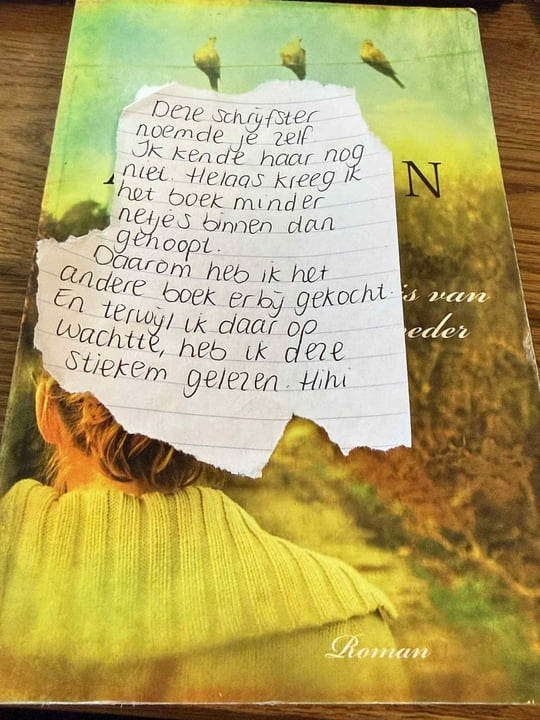 Deze schrijfster
noemde je zelf
Ik kende haar nog
niet. Helaas kreeg ik
het boek minder
netjes binnen dan
gehoopt.
Daarom heb ik het
andere boek erbij gekocht.
En terwijl ik daar op
wachtte, heb ik deze
stiekem gelezen. Hihi
N
is van
eder
Roman